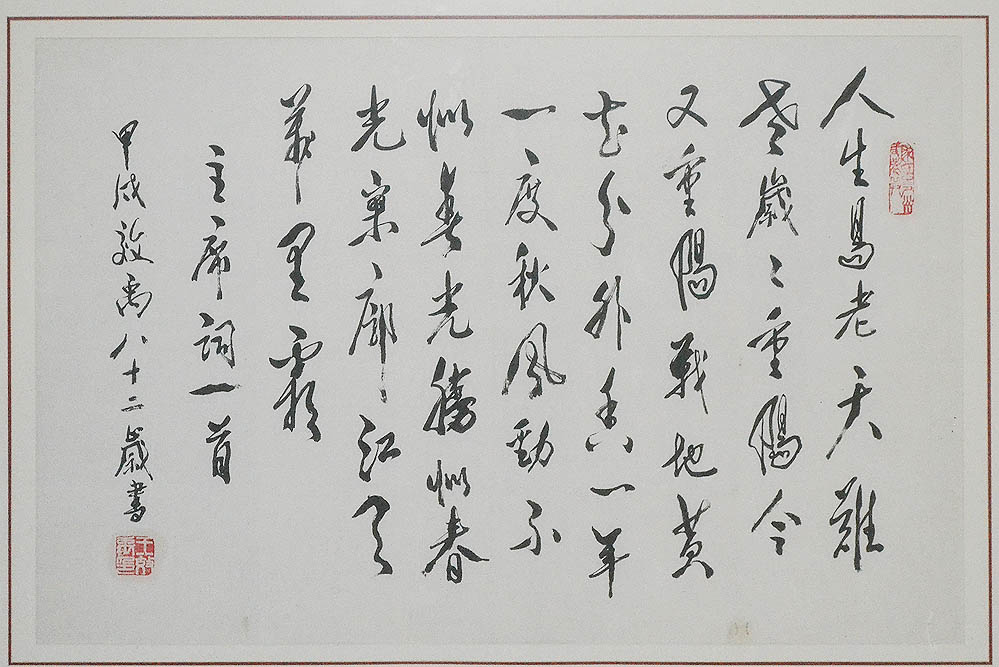 人生易老天難
老歲〻重陽今
又重陽戰地黄
花分外香一年
一度秋風勁不
似春光勝似春
光寥廓江天
萬里霜
主席詞一首
甲戌效禹八十二歲書